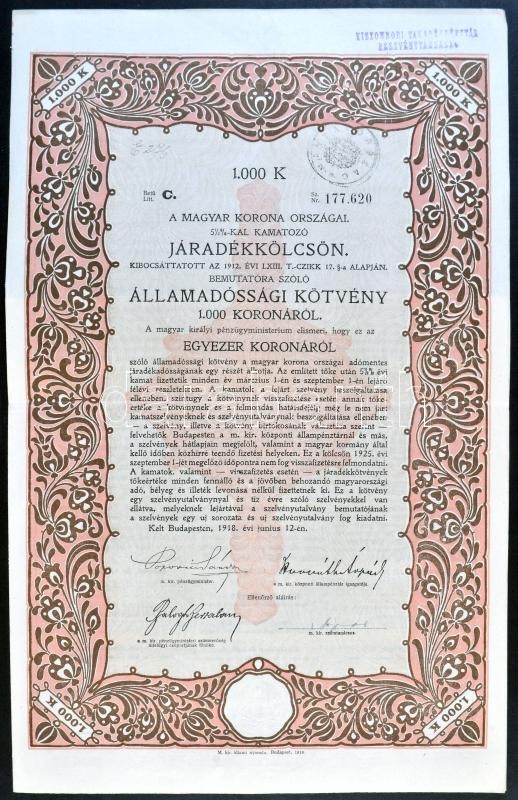 KISZOMBORI TAKARÉKPÉNZTÁR
RÉSZVÉNYTÁRSASÁG
1.000 K
1.000 K
1.000 K
Betű
Litt. C.
Sz.
Nr. 177.620
A MAGYAR KORONA ORSZÁGAI.
5½%-KAL KAMATOZÓ
JÁRADÉKKÖLCSÖN.
KIBOCSÁTTATOTT AZ 1912. ÉVI LXIII. T.-CZIKK 17. §-a ALAPJÁN.
BEMUTATÓRA SZÓLÓ
ÁLLAMADÓSSÁGI KÖTVÉNY
1.000 KORONÁRÓL.
A magyar királyi pénzügyministerium elismeri, hogy ez az
EGYEZER KORONÁRÓL
szóló államadóssági kötvény a magyar korona országai adómentes
járadékadósságának egy részét alkotja. Az említett tőke után 5½%
évi kamat fizettetik minden év márczius 1-én és szeptember 1-én lejáró
félévi részletekben. A kamatok a lejárt szelvény beszolgáltatása
ellenében, szintúgy a kötvénynek visszafizetése esetén annak tőke
értéke a kötvénynek és a felmondás határidejéig még le nem járt
kamatszelvényeknek és szelvényutalványnak beszolgáltatása ellenében
— a szelvény, illetve a kötvény birtokosának választása szerint —
felvehetők Budapesten a m. kir. központi állampénztárnál és más,
a szelvények hátlapjain megjelölt, valamint a magyar kormány által
kellő időben közhírré teendő fizetési helyeken. Ez a kölcsön 1925. évi
szeptember 1-jét megelőző időpontra nem fog visszafizetésre felmondatni.
A kamatok, valamint — visszafizetés esetén — a járadékkötvények
tőkeértéke minden fennálló és a jövőben behozandó magyarországi
adó, bélyeg és illeték levonása nélkül fizettetnek ki. Ez a kötvény
egy szelvényutalványnyal és tíz évre szóló szelvényekkel van
ellátva, melyeknek lejártával a szelvényutalvány bemutatójának
a szelvények egy uj sorozata és uj szelvényutalvány fog kiadatni.
Kelt Budapesten, 1918. évi junius 12-én.
m. kir. pénzügyminister.
a m. kir. központi állampénztár igazgatója.
Ellenőrző aláírás:
a m. kir. pénzügyministeri számvevőség
hitelügyi csoportjának főnöke.
m. kir. számtanácsos.
1.000 K
1.000 K
M. kir. állami nyomda. Budapest, 1918.